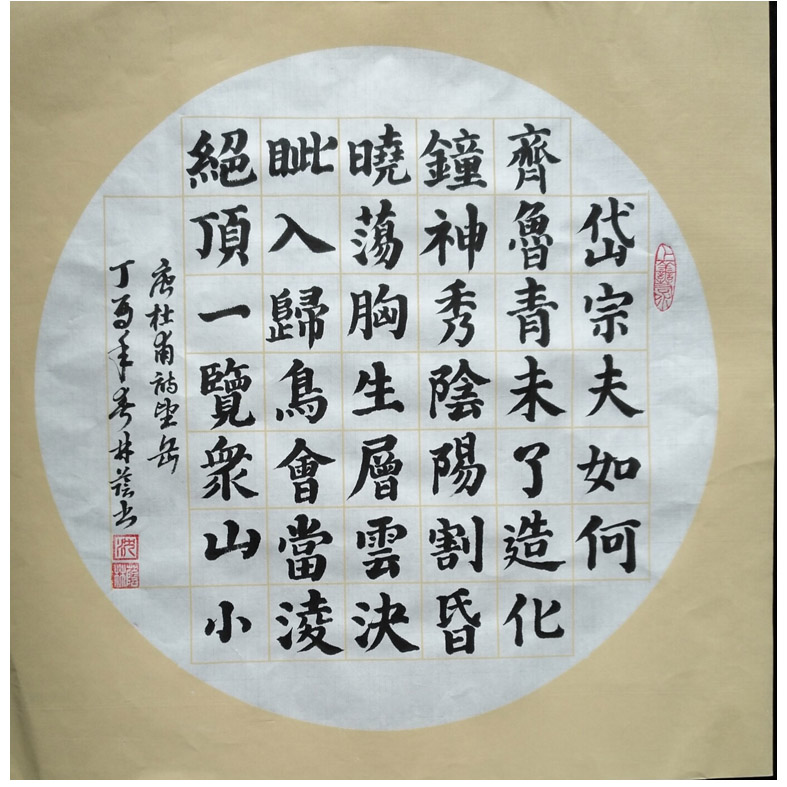 岱宗夫如何
齊魯青未了造化
鐘神秀陰陽割昏
曉蕩胸生層雲決
眦入歸鳥會當淩
絕頂一覽衆山小
唐杜甫詩望岳
丁酉年春林蔭书